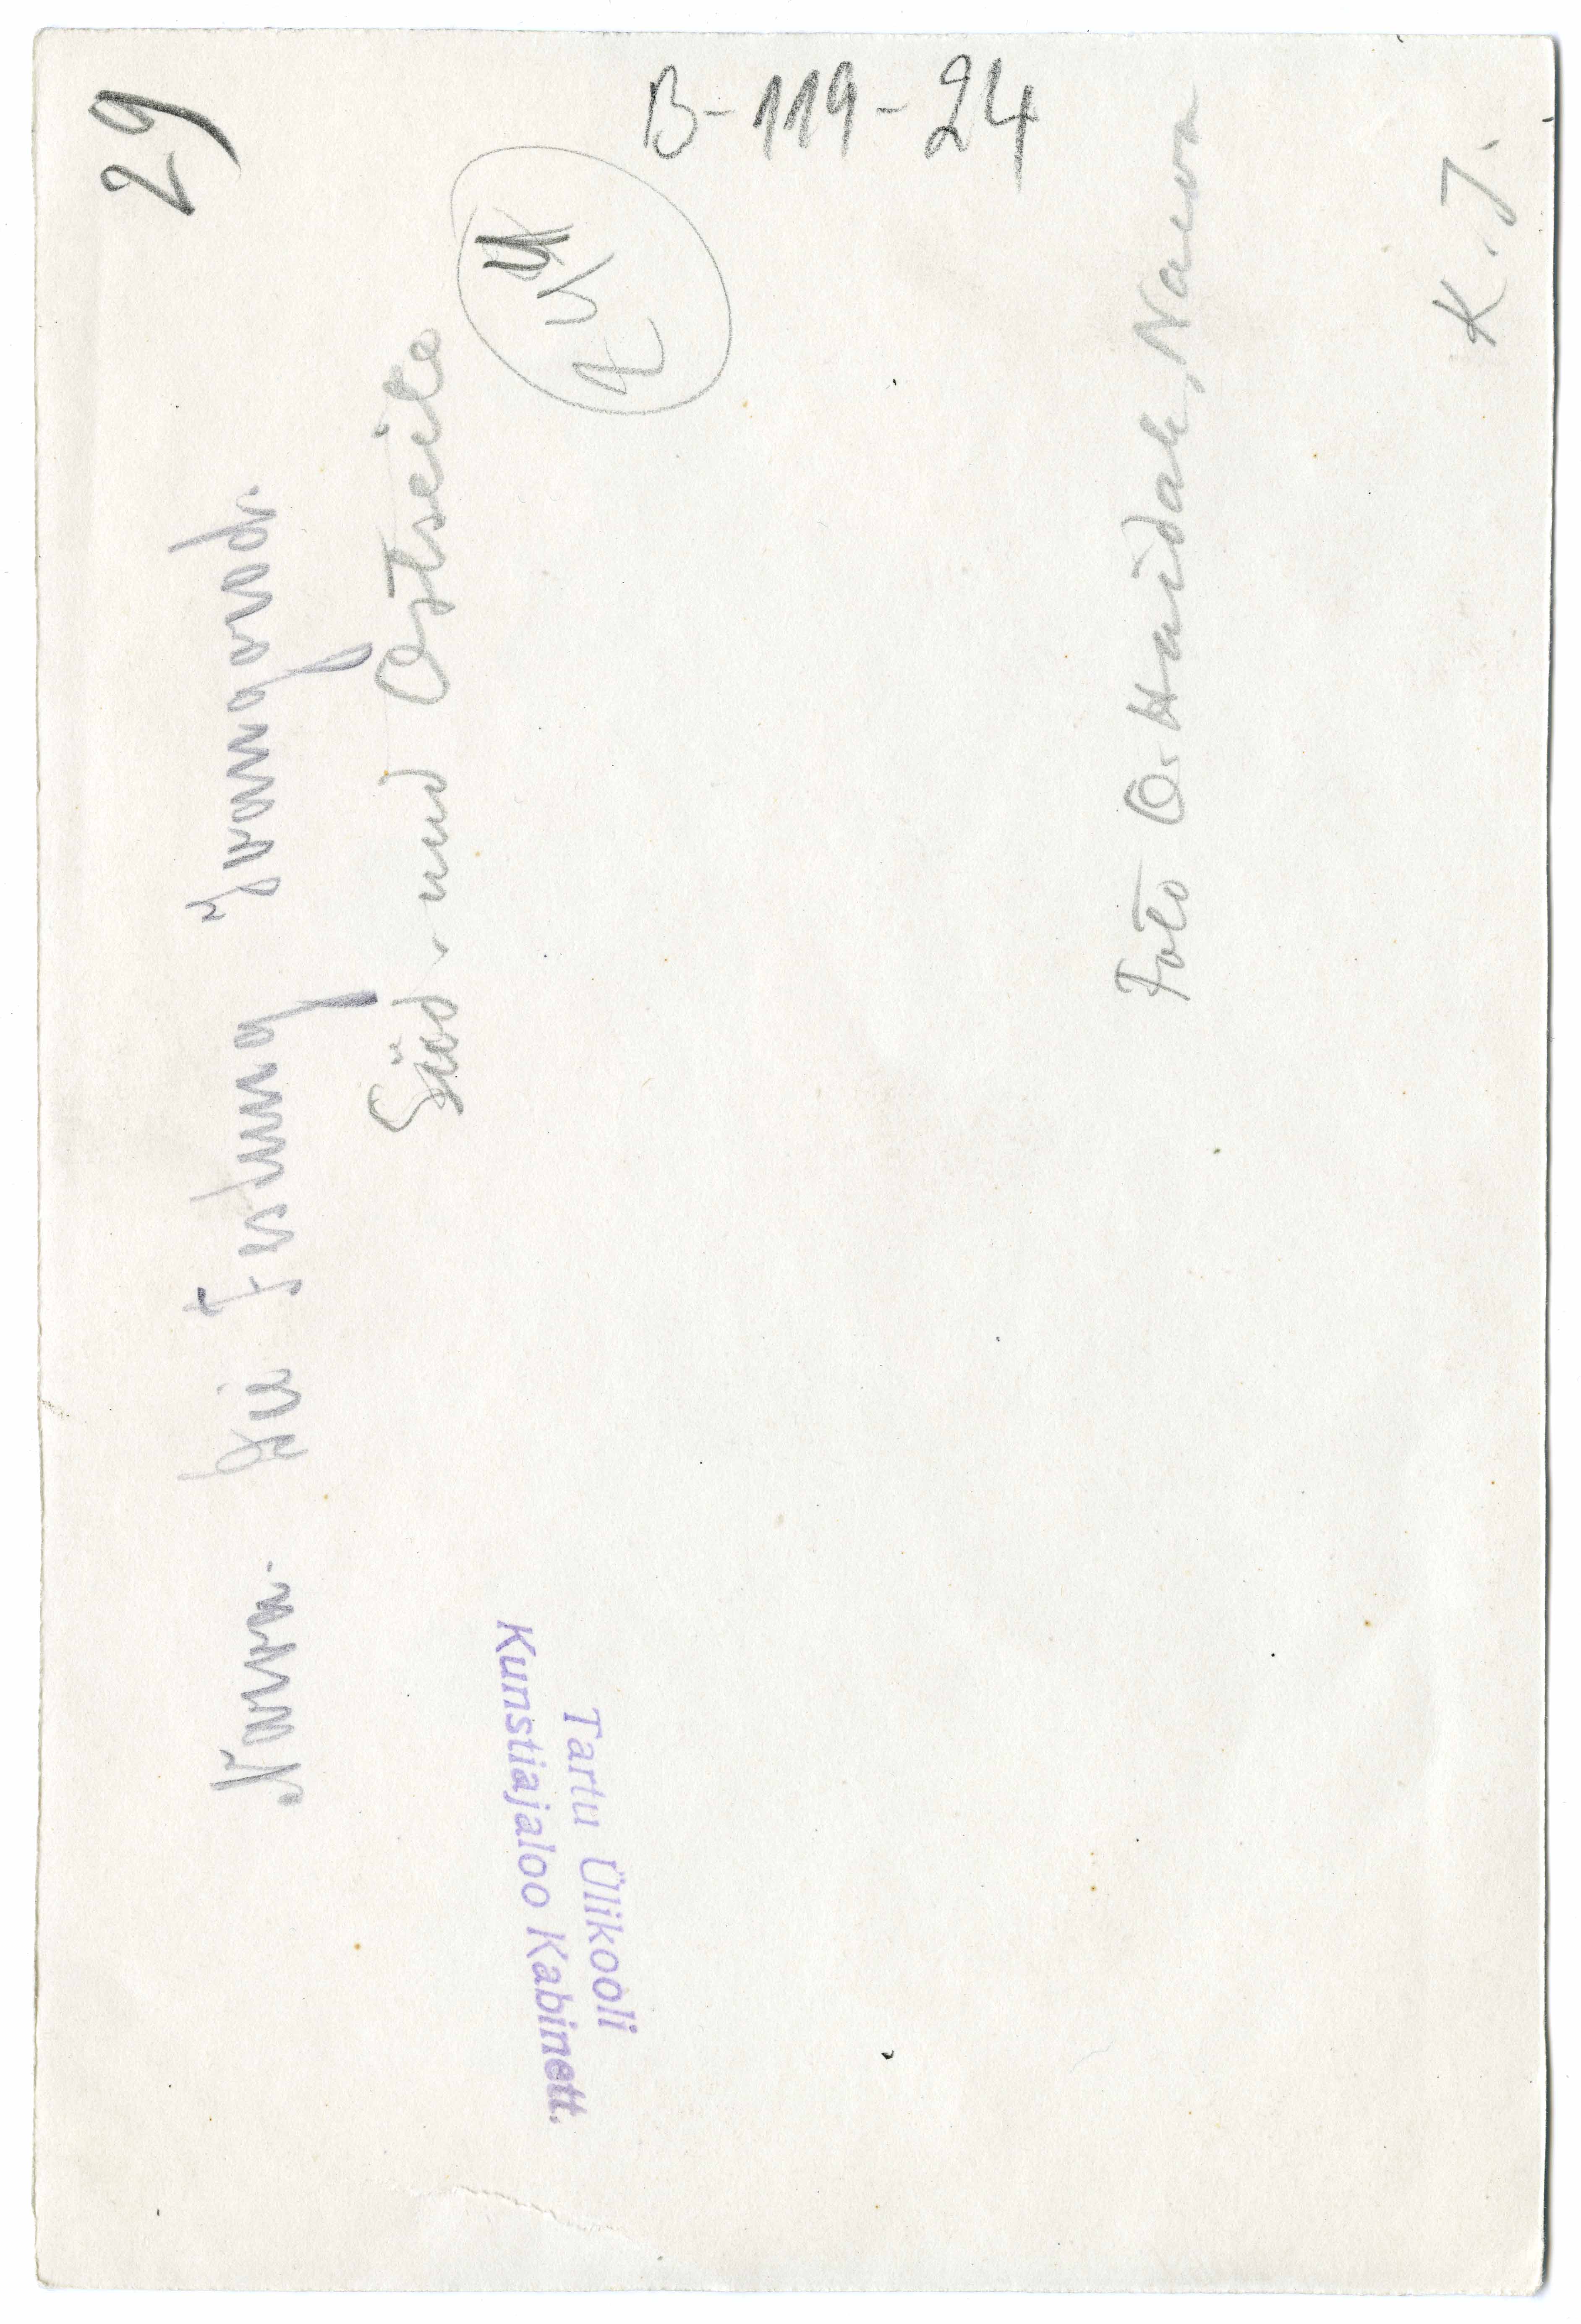 29
B-119-24
Narva. Die Festung Iwangorod.
Süd- und Ostseite
Foto O. Haidak, Narva
K. J.
Tartu Ülikooli
Kunstiajaloo Kabinett.